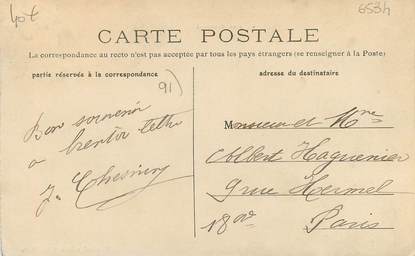 40t
653h
CARTE POSTALE
La correspondance au recto n'est pas acceptée par tous les pays étrangers (se renseigner à la Poste)
partie réservée à la correspondance
adresse du destinataire
91)
Bon souvenir
a
J. Thesnin
Monsieur et Mme
Albert Haguenier
9 rue Hermel
18e
Paris